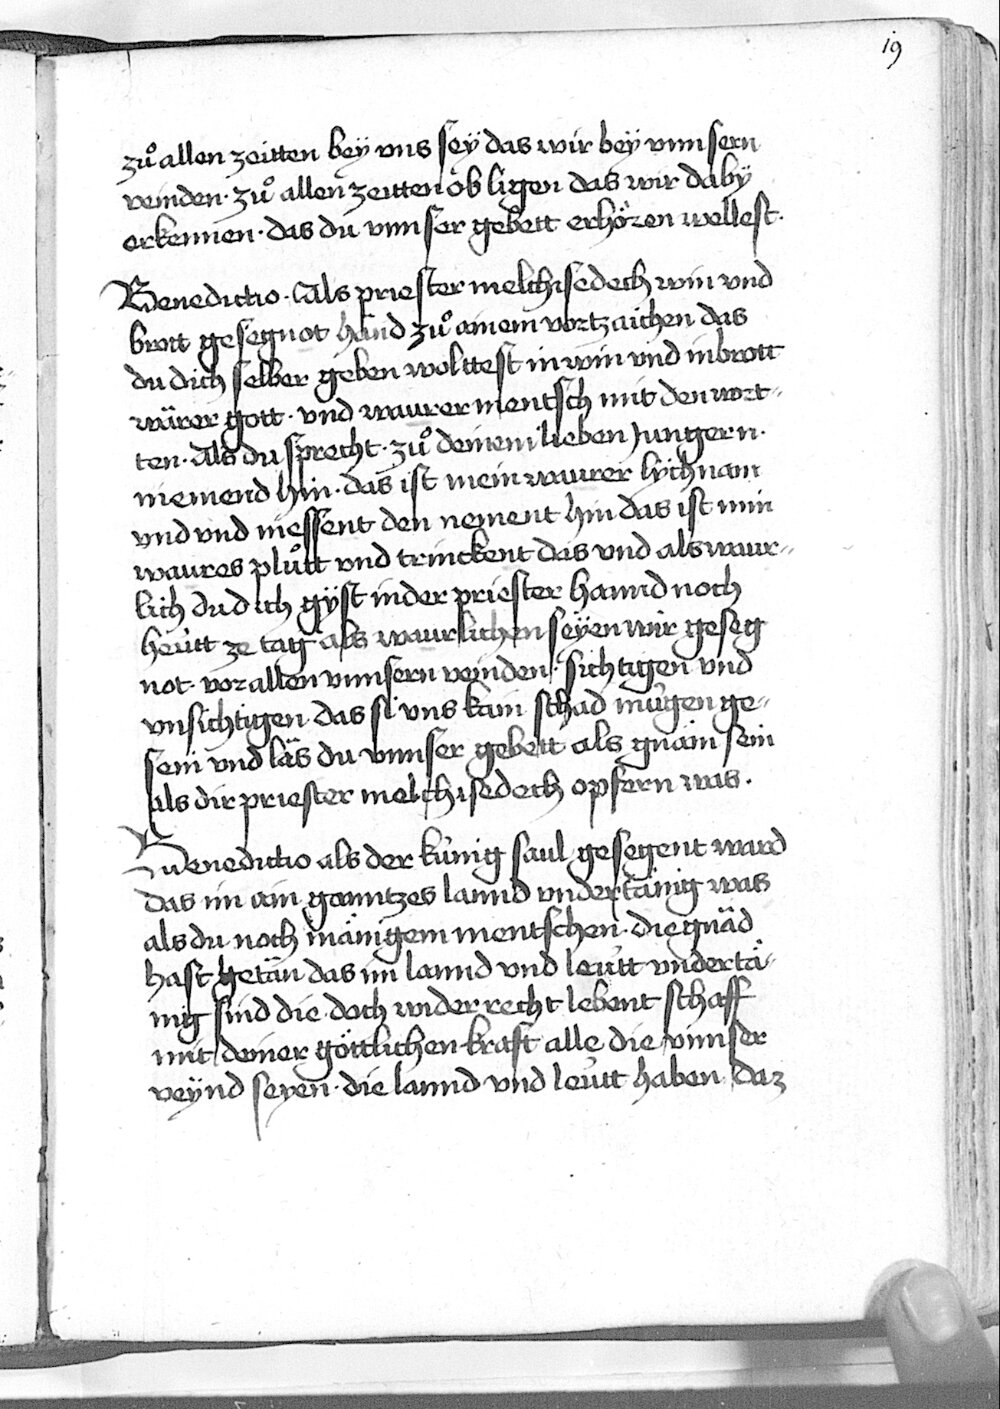 19
zů allen zeitten bey vns sey das wir bey vnnsern
veinden · zů allen zeitten ob ligen das wir daby
erkennen · das du vnnser gebett erhören wellest ·
Benedictio · Als priester melchisedech win vnd
brott gesegnot haͤnd zů ainem vortzaichen das
du dich selber geben wolttest in win vnd in brott
wärer gott · vnd waurer mentsch mit den wort-
ten · Als du sprecht · zů deinem lieben Jungern ·
niemend hin · das ist mein waurer lychnam
vnd vnd niessent den nement hin das ist min
waures plůtt vnd trinckent das vnd als waur-
lich du dich gyst in der priester hannd noch
heütt ze tag als waurlichen seyen wir geseg
not · vor allen vnnsern veinden · sichtigen vnd
vnsichtigen · das si vns kain schad mügen ge-
sein vnd läs du vnnser gebett als gnäm sein
als dir priester melchisedech opfern was ·
Benedictio als der künig saul gesegent ward
das im ain ganntzes lannd vndertänig was
als du noch mänigem mentschen · die gnäd
hast getän das im lannd vnd leütt vndertä-
nig sind die doch wider recht lebent schaff
mit deiner göttlichen krafft alle die vnnser
veynd seyen · die lannd vnd leütt haben daz